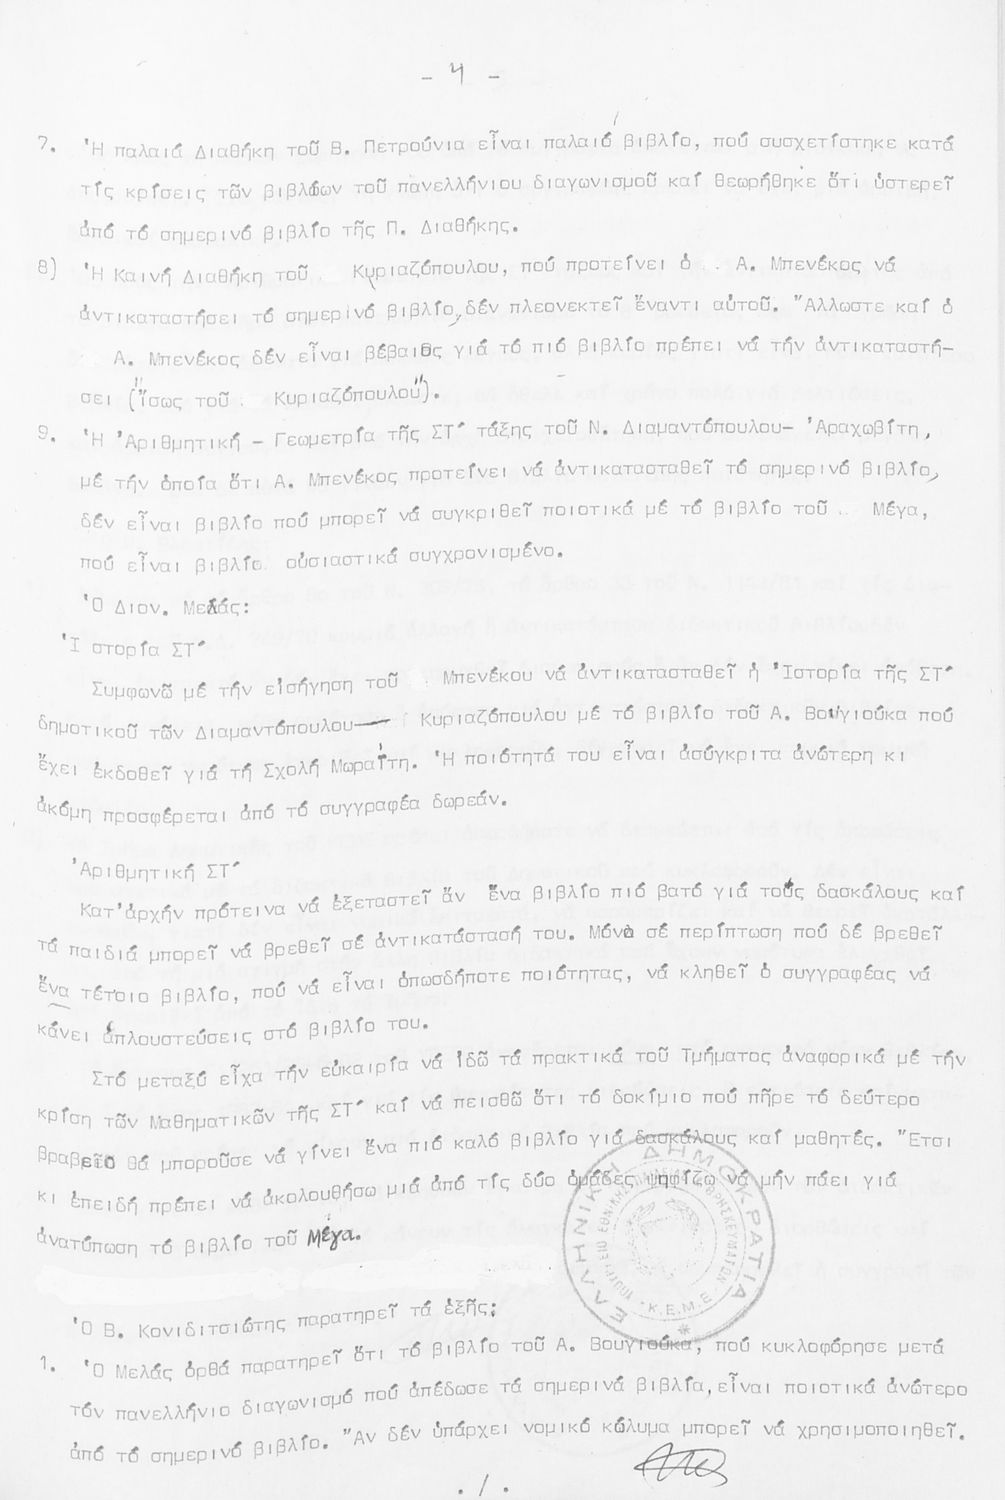 - 4 -
7. Ἡ παλαιά Διαθήκη τοῦ Β. Πετρούνια εἶναι παλαιό βιβλίο, πού συσχετίστηκε κατά
τίς κρίσεις τῶν βιβλίων τοῦ πανελλήνιου διαγωνισμοῦ καί θεωρήθηκε ὅτι ὑστερεῖ
ἀπό τό σημερινό βιβλίο τῆς Π. Διαθήκης.
8) Ἡ Καινή Διαθήκη τοῦ Κυριαζόπουλου, πού προτείνει ὁ Α. Μπενέκος νά
ἀντικαταστήσει τό σημερινό βιβλίο, δέν πλεονεκτεῖ ἔναντι αὐτοῦ. Ἄλλωστε καί ὁ
Α. Μπενέκος δέν εἶναι βέβαιος γιά τό πιό βιβλίο πρέπει νά τήν ἀντικαταστή-
σει ("ἴσως τοῦ Κυριαζόπουλου").
9. Ἡ Ἀριθμητική - Γεωμετρία τῆς ΣΤ´ τάξης τοῦ Ν. Διαμαντόπουλου- Ἀραχωβίτη,
μέ τήν ὁποία ὅτι Α. Μπενέκος προτείνει νά ἀντικατασταθεῖ τό σημερινό βιβλίο,
δέν εἶναι βιβλίο πού μπορεῖ νά συγκριθεῖ ποιοτικά μέ τό βιβλίο τοῦ Μέγα,
πού εἶναι βιβλίο οὐσιαστικά συγχρονισμένο.
Ὁ Διον. Μελάς:
Ἱστορία ΣΤ´
Συμφωνῶ μέ τήν εἰσήγηση τοῦ Μπενέκου νά ἀντικατασταθεῖ ἡ Ἱστορία τῆς ΣΤ´
δημοτικοῦ τῶν Διαμαντόπουλου — Κυριαζόπουλου μέ τό βιβλίο τοῦ Α. Βουγιούκα πού
ἔχει ἐκδοθεῖ γιά τή Σχολή Μωραΐτη. Ἡ ποιότητά του εἶναι ἀσύγκριτα ἀνώτερη κι
ἀκόμη προσφέρεται ἀπό τό συγγραφέα δωρεάν.
Ἀριθμητική ΣΤ´
Κατ'ἀρχήν πρότεινα νά ἐξεταστεῖ ἄν ἕνα βιβλίο πιό βατό γιά τούς δασκάλους καί
τά παιδιά μπορεῖ νά βρεθεῖ σέ ἀντικατάστασή του. Μόνο σέ περίπτωση πού δέ βρεθεῖ
ἕνα τέτοιο βιβλίο, πού νά εἶναι ὁπωσδήποτε ποιότητας, νά κληθεῖ ὁ συγγραφέας νά
κάνει ἁπλουστεύσεις στό βιβλίο του.
Στό μεταξύ εἶχα τήν εὐκαιρία νά ἰδῶ τά πρακτικά τοῦ Τμήματος ἀναφορικά μέ τήν
κρίση τῶν Μαθηματικῶν τῆς ΣΤ´ καί νά πεισθῶ ὅτι τό δοκίμιο πού πῆρε τό δεύτερο
βραβεῖο θά μποροῦσε νά γίνει ἕνα πιό καλό βιβλίο γιά δασκάλους καί μαθητές. Ἔτσι
κι ἐπειδή πρέπει νά ἀκολουθήσω μιά ἀπό τίς δύο ὁμάδες ψηφίζω νά μήν πάει γιά
ἀνατύπωση τό βιβλίο τοῦ Μέγα.
ΕΛΛΗΝΙΚΗ ΔΗΜΟΚΡΑΤΙΑ
ΥΠΟΥΡΓΕΙΟ ΕΘΝΙΚΗΣ ΠΑΙΔΕΙΑΣ & ΘΡΗΣΚΕΥΜΑΤΩΝ
Κ.Ε.Μ.Ε.
Ὁ Β. Κονιδιτσιώτης παρατηρεῖ τά ἑξῆς:
1. Ὁ Μελάς ὀρθά παρατηρεῖ ὅτι τό βιβλίο τοῦ Α. Βουγιούκα, πού κυκλοφόρησε μετά
τόν πανελλήνιο διαγωνισμό πού ἀπέδωσε τά σημερινά βιβλία, εἶναι ποιοτικά ἀνώτερο
ἀπό τό σημερινό βιβλίο. Ἄν δέν ὑπάρχει νομικό κώλυμα μπορεῖ νά χρησιμοποιηθεῖ.
./.